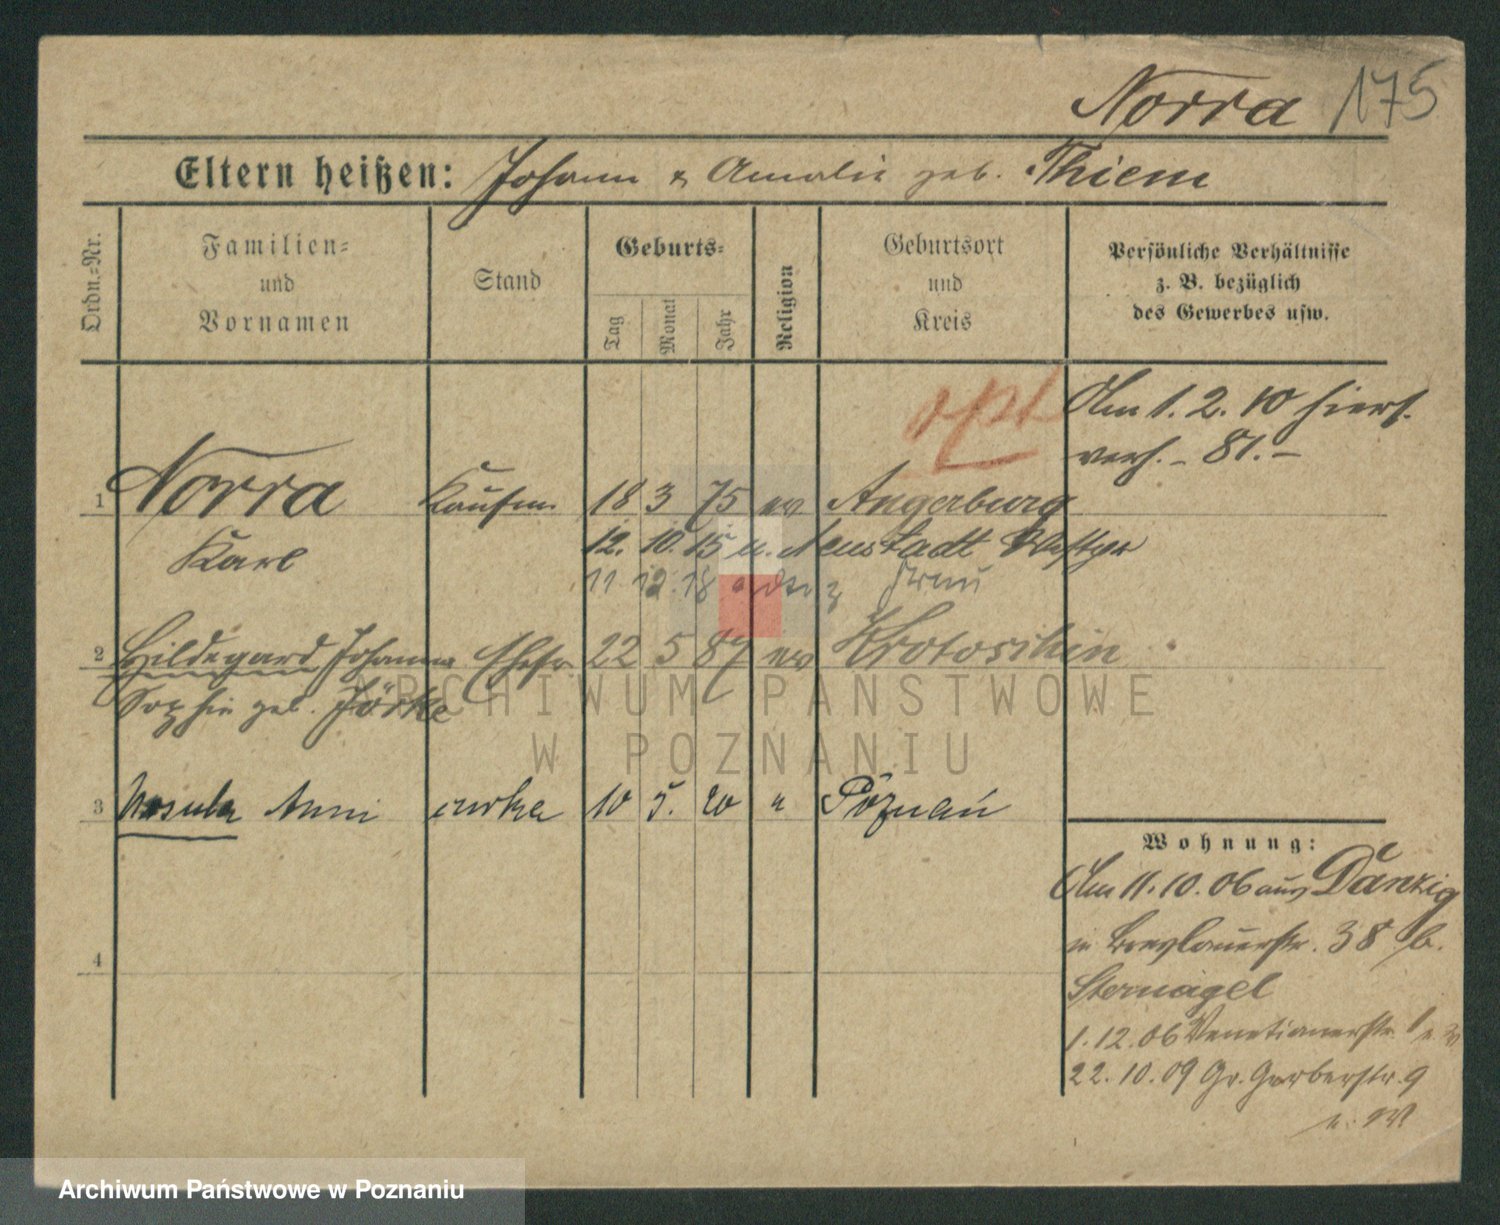 Norra 175
Eltern heißen: Johann & Amalie geb. Thiem
Ordn.-Nr.
Familien-
und
Vornamen
Stand
Geburts-
Tag
Monat
Jahr
Religion
Geburtsort
und
Kreis
Persönliche Verhältnisse
z. B. bezüglich
des Gewerbes usw.
opt
Am 1. 2. 10 hiers.
verh. – 81. –
1 Norra Kaufm. 18 3 75 ev Angerburg
Karl 12. 10. 15 n. Neustadt Westpr
11 12. 18 Frau
2 Hildegard Johanna Ehefr. 22 5 87 ev Krotoschin
Sophie geb. Jörke
3 Ursula Anni córka 10 5. 20 " Poznań
4
Wohnung:
Am 11. 10. 06 aus Danzig
in Breslauerstr. 38 b.
Sternagel
1. 12. 06 Venetianerstr. 1
22. 10. 09 Gr. Gerberstr. 9
ARCHIWUM PAŃSTWOWE
W POZNANIU
Archiwum Państwowe w Poznaniu